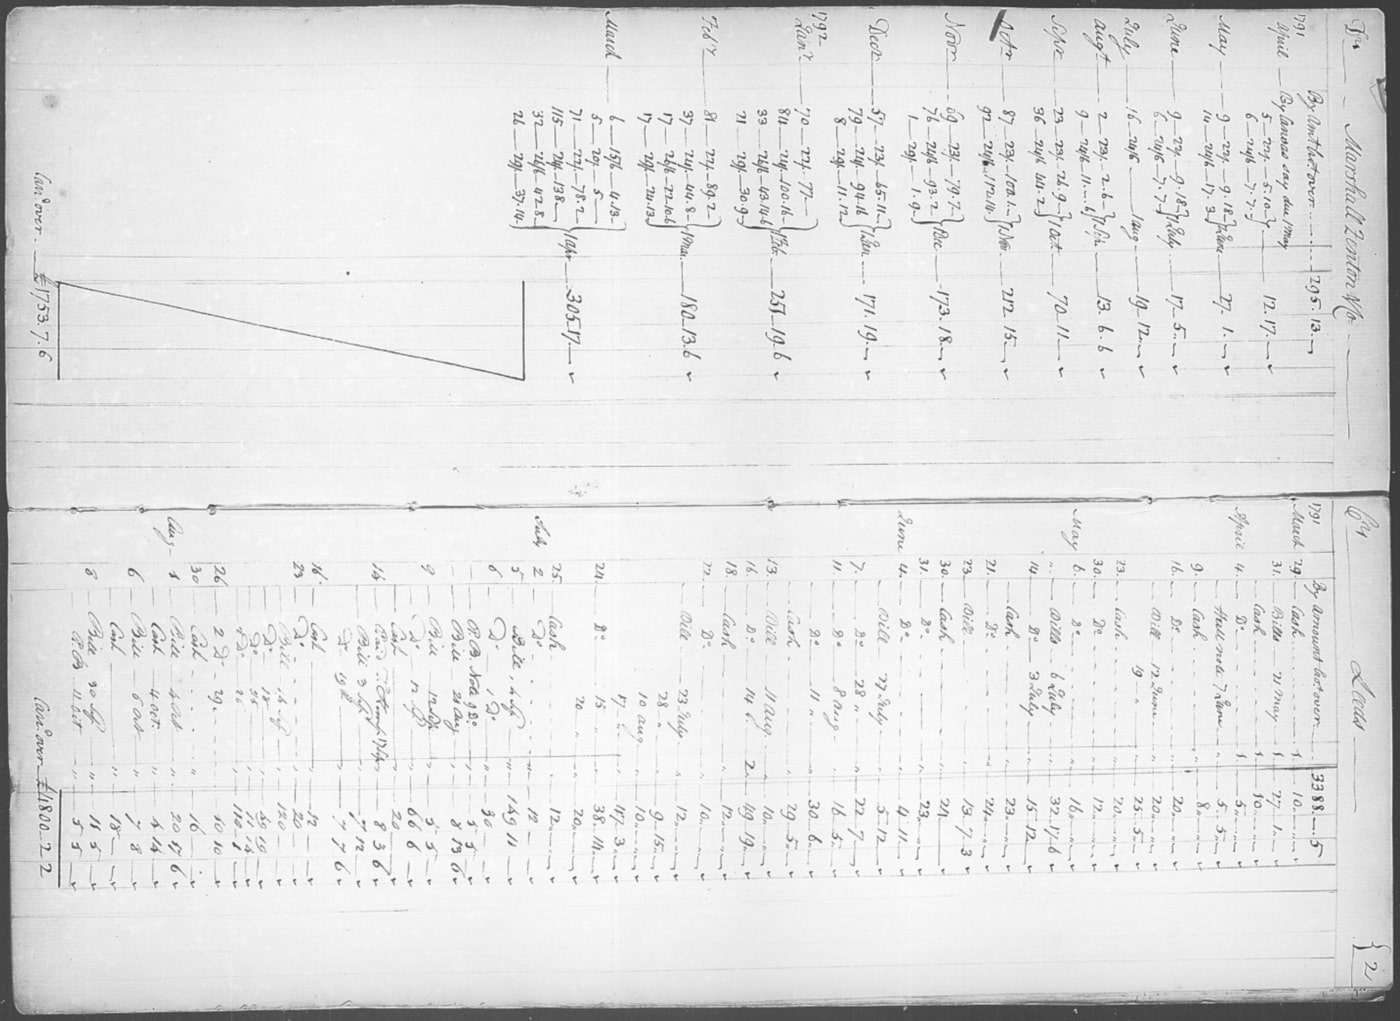 Dr. Marshall Fenton & Co
By Amt bro.t over 295.13.
1791
April By Canvas say due 1 May
5 22/. 5.10 12.17.
6 24/6 7.7
May 9 22/. 9.18 1 June 27.1.
14 24/6 17.3
June 9 22/. 9.18 1 July 17.5
6 24/6 7.7
July 16 24/6 1 aug 19.12
augt 2 23/. 2.6 1 Sepr 13.6.6
9 24/6 11..6
Sepr 23 23/. 26.9 1 Oct 70.11
36 24/6 44.2
Octr 87 23/. 100.1 1 Nov 212.15
92 24/6 112.14
Novr 69 23/. 79.7
76 24/6 93.2 1 Dec 173.18
1 29/. 1.9
Decr 57 23/. 65.11
79 24/. 94.16 1 Jan 171.19
8 29/. 11.12
1792
Janr 70 22/. 77
84 24/. 100.16 1 Feb 251.19.6
33 26/6 43.14.6
21 29/. 30.9
Febr 81 22/. 89.2
37 24/. 44.8 1 Mar. 180.13.6
17 26/6 22.10.6
17 29/. 24.13
March 6 15/6 4.13
5 20/. 5
71 22/. 78.2
115 24/. 138 1 Apr 305.17
32 26/6 42.8
26 29/. 37.14
Carr.d over £1753.7.6
Cr. Leeds 2
1791 By Amount bro.t over 3388..5
March 29. Cash 1. 10
31. Bills 21 May 1. 27 1
Cash 1. 10
April 4. Do 1. 5
Hull note 7 June " 5 5
9. Cash " 8
16. Do " 20
Bill 12 June " 20
19 " " 25 5
23. Cash " 20
30. Do " 12
May 6. Do " 16
" Bills 6 July " 32 17 6
14 Do 3 July " 15 12
Cash " 23
21. Do " 24
23 Bill 13 7 3
30. Cash " 21
31. Do " 23
June 4. Do " 4 11
Bill 27 July " 5 12
7. Do 28 " " 22 7
11. Do 8 aug " 16 5
Do 11 " " 30 6
Cash " 29 5
13. Bill 11 aug. " 10
16. Do 14 2 49 19
18. Cash 12
22. Do 10
Bill 23 July " 12
28 " " 9 15
10 aug " 10
17 " " 117 3
24. Do 15 " " 38 14
20 " " 20
25. Cash " 12
July 2 Do " 12
5 Bill 4 Sep " 149 11
6 Do 1 Do " 30
P.B. Note 9 Do " 5 5
Bill 21 Aug " 8 13 6
9 Bill 12 Sep " 5 5
Do 12 Sep " 66 6
Cash " 20
14 17 Sep 8 3 6
Bill 3 Sep " 7 12
Do 19th " 7 7 6
16 Cash " 12
23 Do " 20
Bill 14 Sep " 120
Do 18 " 49 19
Do 25 " 11 14
2 Do 26 " 110 1
26 2 Do 29 10 10
30 Cash " 16
Aug 1 Bill 4 Oct " 20 17 6
Cash 4 Oct. " 4 14
6 Bill 6 Oct " 7 8
Cash " 18
8 Bill 30 Sep " 11 5
P.B. 11 Oct " 5 5
Carr.d over £4800 2 2